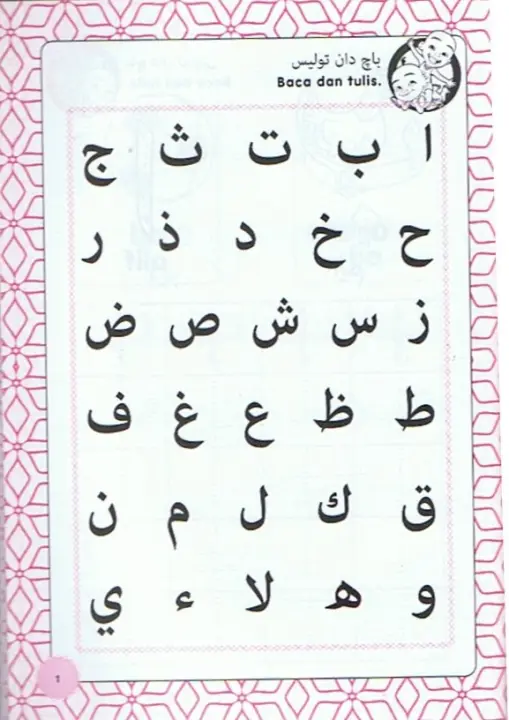 باچ دان توليس
Baca dan tulis.
ا ب ت ث ج
ح خ د ذ ر
ز س ش ص ض
ط ظ ع غ ف
ق ك ل م ن
و ه لا ء ي
1